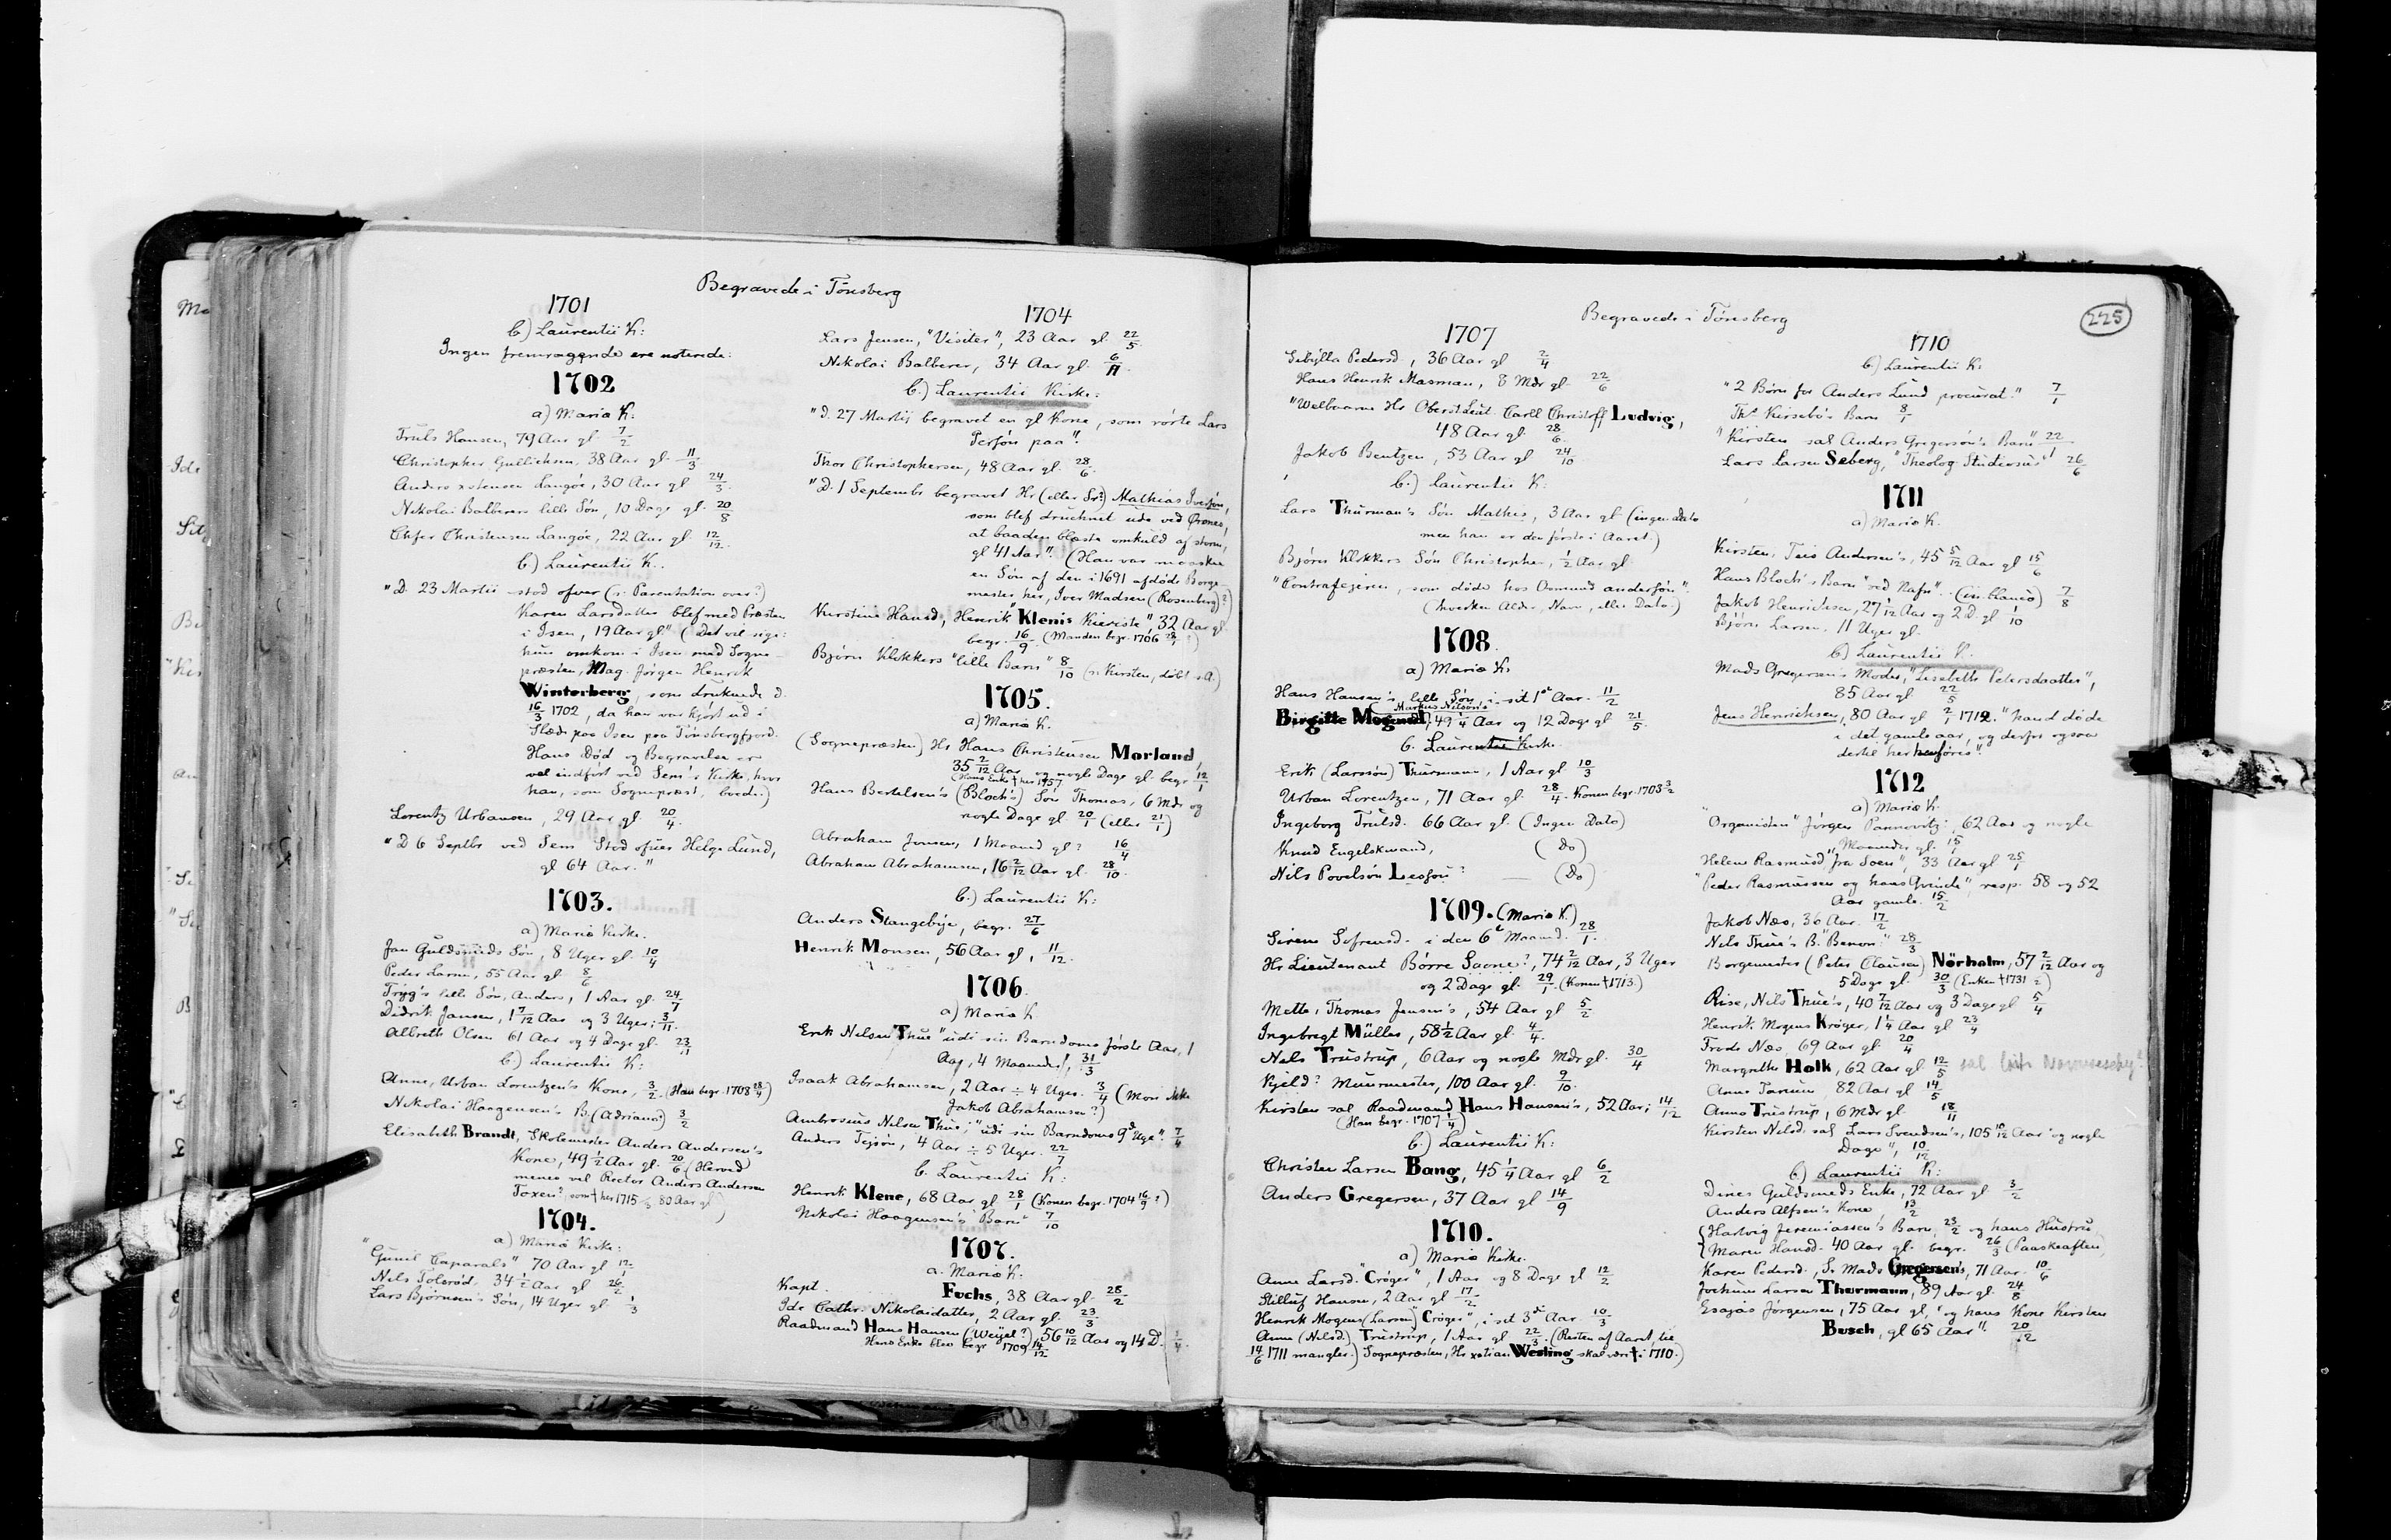 Begravede i Tönsberg
1701
b.) Laurentii K:
Ingen fremragende ere noterede:
1702
a) Mariæ K:
Truls Hansen, 79 Aar gl 7/2
Christopher Gullichsen, 38 Aar gl. 11/3
Anders xstensen Langöe, 30 Aar gl 24/3.
Nikolai Balberers lille Sön, 10 Dage gl. 20/8
Chfer Christensen Langöe, 22 Aar gl 12/12.
b.) Laurentii K.
"D. 23 Martii stod ofver (ɔ: Parentation over?)
Karen Larsdatter blef med Præsten
i Isen, 19 Aar gl." (Det vil sige:
hun omkom i Isen med Sogne-
præsten, Mag. Jörgen Henrik
Winterberg, som druknede d.
16/3 1702, da han var kjört ud i
Slæde paa Isen paa Tönsbergfjord.
Hans Död og Begravelse er
vel indfört ved Sem's Kirke, hvor
han, som Sognepræst, boede.)
Lorentz Urbansen, 29 Aar gl. 20/4.
"D 6 Septbr ved Sem Stod ofver Helge Lund,
gl 64 Aar."
1703.
a) Mariæ Kirke.
Jan Guldsmeds Sön, 8 Uger gl. 10/4
Peder Larsen, 55 Aar gl. 8/6
Trÿg's lille Sön, Anders, 1 Aar gl. 24/7
Didrik Jansen, 1 7/12 Aar og 3 Uger; 3/11.
Albreth Olsen 61 Aar og 4 Dage gl. 23/11
b.) Laurentii K:
Anne, Urban Lorentzen's Kone, 3/2. (Han begr. 1708 28/4)
Nikolai Haagensen's B. (Adriana) 3/2
Elisabeth Brandt, Skolemester Anders Andersen's
Kone, 49 1/2 Aar gl. 20/6 (Herved
menes vel Rector Anders Andersen
Toxen? som † her 1715 80 Aar gl)
1704.
a) Mariæ Kirke:
"Gunil Caparals" 70 Aar gl 12/1
Nils Tolsröd, 34 1/2 Aar gl 26/2
Lars Björnsen's Sön, 14 Uger gl. 1/3
1704
Lars Jensen, "Visiter", 23 Aar gl. 22/5.
Nikolai Balberer, 34 Aar gl. 6/11.
b.) Laurentii Kirke:
"D. 27 Martij begravet en gl Kone, som rörte Lars
Persön paa".
Thor Christophersen, 48 Aar gl. 28/6.
"D. 1 Septembr begravet Hr (eller Sr?) Mathias Iversön,
som blef druchnet ude ved Örsnes,
at baaden blæste omkuld af storm,
gl 41 Aar". (Han var maaskee
en Sön af den i 1691 afdöde Borge-
mester her, Iver Madsen (Rosenberg)?
Kirstine Hansd, Henrik "Klenis Kieriste", 32 Aar gl.
begr. 16/9 (Manden begr. 1706 28/1 ?)
Björn Klokkers "lille Barn" 8/10 (ɔ: Kirsten, döbt s.A.)
1705.
a) Mariæ K.
(Sognepræsten) Hr Hans Christensen Morland,
35 2/12 Aar og nogle Dage gl. begr 12/1
(Hans Enke † her 1757
Hans Bertelsen's (Bloch's) Sön Thomas, 6 Mdr og
nogle Dage gl 20/1 (eller 21/1)
Abraham Jonsen, 1 Maaned gl? 16/4
Abraham Abrahamsen, 16 2/12 Aar gl. 28/10.
b.) Laurentii K:
Anders Stangebÿe, begr. 27/6
Henrik Monsen, 56 Aar gl, 11/12.
1706
a) Mariæ K
Erik Nilsen Thue "udi sin Barndoms förste Aar, 1
Aar, 4 Maaneder", 31/3
Isaak Abrahamsen, 2 Aar ÷ 4 Uger. 3/4 (Mon ikke
Jakob Abrahamsen?)
Ambrosius Nilsen Thue; "udi sin Barndoms 9de Uge". 7/4
Anders Tejsön, 4 Aar ÷ 5 Uger. 22/7
b. Laurentii K:
Henrik Klene, 68 Aar gl 28/1 (Konen begr. 1704 16/9 ?)
Nikolai Haagensen's Barn 7/10
1707.
a. Mariæ K:
Kapt. Fuchs, 38 Aar gl. 28/2
Ide Cathr. Nikolaidatter, 2 Aar gl. 23/3
Raadmand Hans Hansen (Weÿel?) 56 10/12 Aar og 14 D. 1/4.
Hans Enke blev begr 1709 14/12
Begravede i Tönsberg
225
1707
Sibÿlla Pedersd, 36 Aar gl 2/4
Hans Henrik Masman, 8 Mdr gl. 22/6
"Welbaarne Hr Oberst Leut. Carll Christoff Ludvig,
48 Aar gl. 28/6.
Jakob Bentzen, 53 Aar gl 24/10
b.) Laurentii K:
Lars Thurman's Sön Mathis, 3 Aar gl (ingen dato
men han er den förste i Aaret.)
Björn Klokkers Sön Christopher, 1/2 Aar gl
"Contrafejeren, som döde hos Osmund andersön".
(hverken Alder, Navn, eller Dato.)
1708.
a) Mariæ K.
Hans Hansen's lille Sön, i sit 1ste Aar. 11/2
Markus Nilsön's
Birgitte Mogensd, 49 1/4 Aar og 12 Dage gl 21/5.
b. Laurentii Kirke.
Erik (Larssön) Thurmann, 1 Aar gl 10/3
Urban Lorentzen, 71 Aar gl. 28/4. Konen begr. 1703 3/2
Ingeborg Trulsd. 66 Aar gl. (Ingen Dato)
Knud Engelskmand, (do)
Nils Povelsön Lessou? — (Do)
1709. (Mariæ K.)
Sirene Sofrensd. i den 6te Maaned. 28/1.
Hr Lieutenant Börre Saone?, 74 2/12 Aar, 3 Uger
og 2 Dage gl. 29/1. (Konen † 1713.)
Mette, Thomas Jensen's, 54 Aar gl 5/2
Ingebregt Müller, 58 1/2 Aar gl. 4/4.
Nels Trustrup, 6 Aar og nogle Mdr gl. 30/4
Kjeld? Muurmester, 100 Aar gl. 9/10.
Kirsten sal Raadmand Hans Hansen's, 52 Aar; 14/12
(Han begr. 1707 1/4)
b.) Laurentii K:
Christen Larsen Bang, 45 1/4 Aar gl 6/2
Anders Gregersen, 37 Aar gl 14/9
1710.
a) Mariæ Kirke.
Anne Larsd. "Cröger", 1 Aar og 8 Dage gl 12/2
Stilluf Hansen, 2 Aar gl 17/2
Henrik Mogens (Larsen) "Cröger", i sit 3die Aar 10/3
Anna (Nilsd) Trustrup, 1 Aar gl 22/3. (Resten af Aaret, til
14/6 1711 mangler.) Sognepræsten, Hr xstian Wesling skal være † i 1710.)
1710
b.) Laurentii K:
"2 Börn for Anders Lund procurat." 7/1
Ths Kirsebö's Barn 8/1
"Kirsten sal Anders Gregersön's Barn" 22/1
Lars Larsen Seberg, "Theolog. Studiosus" 26/6
1711
a) Mariæ K.
Kirsten, Teis Andersen's, 45 5/12 Aar gl 15/6
Hans Bloch's Barn "ved Nafn". (in blanco) 7/8
Jakob Henrichsen, 27 1/12 Aar og 2 D. gl 1/10
Björn Larsen, 11 Uger gl.
b) Laurentii K.
Mads Gregersen's Moder, "Lisebeth Petersdaatter",
85 Aar gl 22/5
Jens Henrichsen, 80 Aar gl 2/1 1712. "hand döde
i det gamle aar, og derfor ogsaa
dertil her henföris".
1712
a) Mariæ K.
"Organisten" Jörgen Pannovitz, 62 Aar og nogle
Maaneder gl. 15/1
Helene Rasmusd "fra Soen", 33 Aar gl 25/1
"Peder Rasmussen og hans Qvinde", resp. 58 og 52
Aar gamle. 15/2
Jakob Næs, 36 Aar. 17/2
Nils Thue's B. "Benon" 28/3
Borgemester (Peter Clausen) Nörholm, 57 2/12 Aar og
5 Dage gl. 30/3 (Enken † 1731 ?)
Rise, Nils Thue's, 40 7/12 Aar og 3 Dage gl 5/4
Henrik Mogens Kröger, 1 1/4 Aar gl 23/4
Trods Næs, 69 Aar gl. 20/4
Margrethe Holk, 62 Aar gl 12/5 sal
Anne Tarum, 82 Aar gl 14/5
Anna Trustrup, 6 Mdr gl 18/11
Kirsten Nilsd. sal Lars Svendsen's, 105 10/12 Aar "og nogle
Dage", 10/12
b) Laurentii K:
Dines Guldsmeds Enke, 72 Aar gl 3/2
Anders Alfsen's Kone 13/2
(Hartvig Jeremiassen's Barn, 23/2 og hans Hustru
(Maren Hansd. 40 Aar gl. begr. 26/3 (Paaskeaften)
Karen Pedersd., Sr Mads Gregersen's, 71 Aar. 10/6
Jochum Larsen Thurmann, 89 Aar gl. 24/8
Esajas Jörgensen, 75 Aar gl, "og hans Kone Kirsten
Busch, gl 65 Aar". 20/12